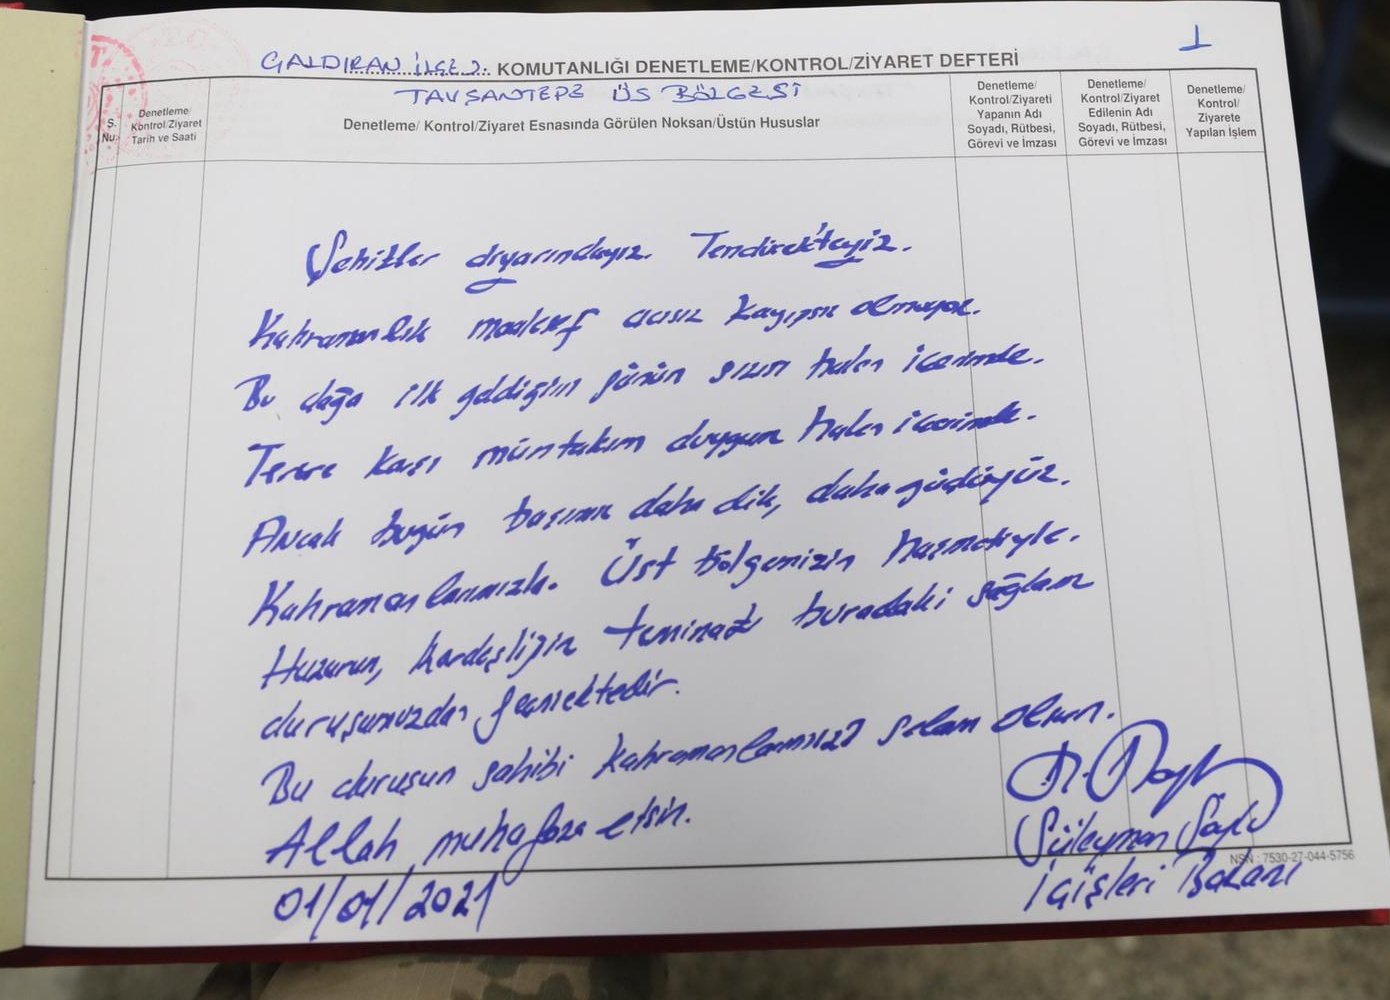 ÇALDIRAN İLÇE J. KOMUTANLIĞI DENETLEME/KONTROL/ZİYARET DEFTERİ
TAVŞANTEPE ÜS BÖLGESİ
1
S. Nu.
Denetleme/ Kontrol/Ziyaret Tarih ve Saati
Denetleme/ Kontrol/Ziyaret Esnasında Görülen Noksan/Üstün Hususlar
Denetleme/ Kontrol/Ziyareti Yapanın Adı Soyadı, Rütbesi, Görevi ve İmzası
Denetleme/ Kontrol/Ziyaret Edilenin Adı Soyadı, Rütbesi, Görevi ve İmzası
Denetleme/ Kontrol/ Ziyarete Yapılan İşlem
Şehitler diyarındayız. Tendürek'teyiz.
Kahramanlık maalesef acısız kayıpsız olmuyor.
Bu dağa ilk geldiğim günün sızısı halen içerimde.
Teröre karşı müntakim duygum halen içerimde.
Ancak bugün başımız daha dik, daha güçlüyüz.
Kahramanlarımızla. Üst bölgemizin haşmetiyle.
Huzurun, kardeşliğin teminatı buradaki sağlam
duruşumuzdan geçmektedir.
Bu duruşun sahibi kahramanlarımıza selam olsun.
Allah muhafaza etsin.
01/01/2021
Süleyman Soylu
İçişleri Bakanı
NSN : 7530-27-044-5756